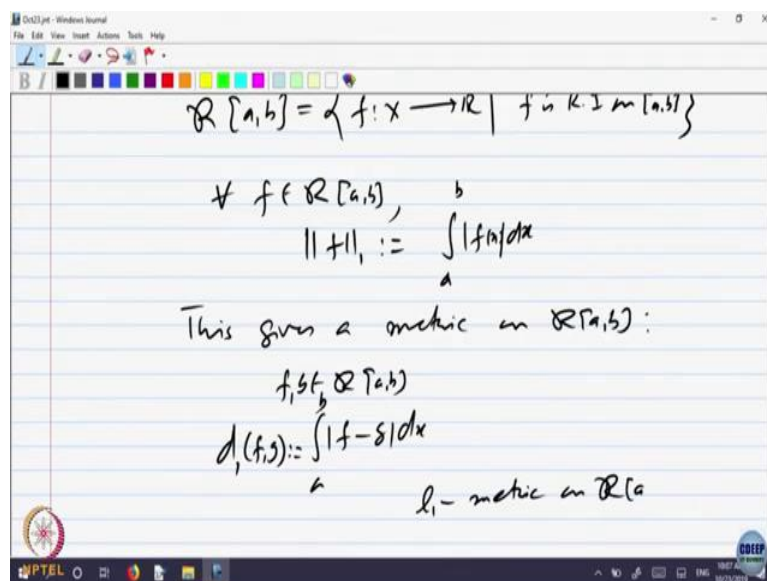 Oct23.jnt - Windows Journal
File Edit View Insert Actions Tools Help
B I
R [a,b] = { f : X → R | f is R.I on [a,b] }
∀ f ∈ R [a,b],
|| f ||₁ := ∫ₐᵇ |f(x)| dx
This gives a metric on R[a,b] :
f, g ∈ R [a,b]
d₁(f,g) := ∫ₐᵇ |f - g| dx
l₁ - metric on R[a
NPTEL
CDEEP
ENG
10/23/2018